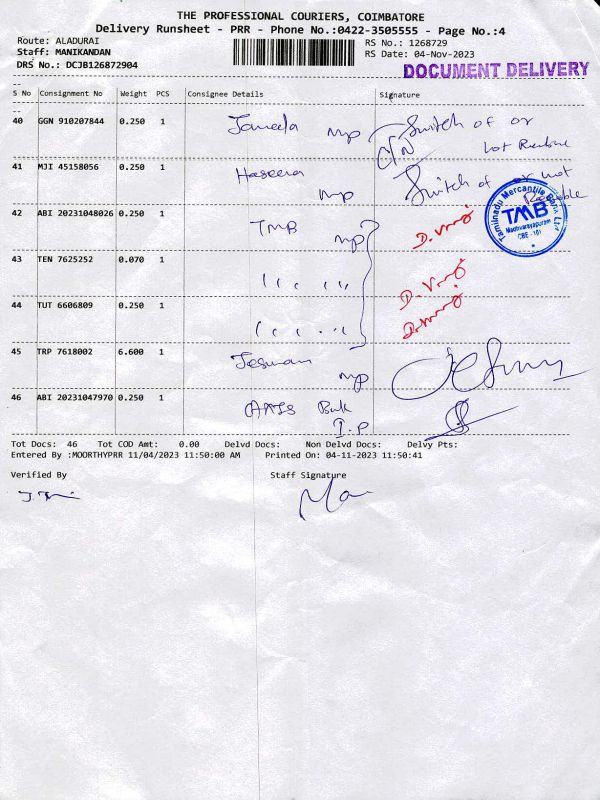 THE PROFESSIONAL COURIERS, COIMBATORE
Delivery Runsheet - PRR - Phone No.:0422-3505555 - Page No.:4
Route: ALADURAI
RS No.: 1268729
Staff: MANIKANDAN
RS Date: 04-Nov-2023
DRS No.: DCJB126872904
DOCUMENT DELIVERY
S No Consignment No Weight PCS Consignee Details Signature
40 GGN 910207844 0.250 1 Jameela mp Switch of or
41 MJI 45158056 0.250 1 Haseera mp Switch of or not
42 ABI 20231048026 0.250 1 TMB mp
Tamilnadu Mercantile Bank Ltd
TMB
Madhvarayapuram
CBE - 101
43 TEN 7625252 0.070 1
44 TUT 6606809 0.250 1
45 TRP 7618002 6.600 1 mp
46 ABI 20231047970 0.250 1 I.P
Tot Docs: 46 Tot COD Amt: 0.00 Delvd Docs: Non Delvd Docs: Delvy Pts:
Entered By :MOORTHYPRR 11/04/2023 11:50:00 AM Printed On: 04-11-2023 11:50:41
Verified By Staff Signature